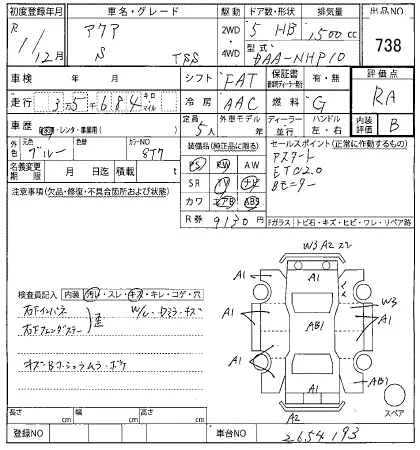 初度登録年月 車名・グレード 駆動 ドア数・形状 排気量 出品NO
R 1/12月 アクア S TSS 2WD・4WD 5 HB 1,500cc 738
型式 DAA-NHP10
車検 年 月 シフト FAT 保証書 有・無 評価点
走行 3万5千684 キロ マイル 冷房 AAC 燃料 G RA
車歴 レンタ・事業用( ) 定員 5人 外車モデル 年 ディーラー 並行 ハンドル 左・右 内装評価 B
外色 元色 ブルー 色替 カラーNO 8T7 装備品(純正品に限る) セールスポイント(正常に作動するもの)
名義変更期限 月 日迄 積載量 t PS PW AW アスタート
注意事項(欠品・修復・不具合箇所および状態) SR TV ナビ ETC2.0
カワ エアB ABS Bモニター
R券 9130円 Fガラス トビ石・キズ・ヒビ・ワレ・リペア跡
W3 A2
A1 A1 A1
検査員記入 内装 汚レ・スレ・キズ・キレ・コゲ・穴
右Fインパネ W/L・Dミラ・キズ
A1 AB1 W3 A1
A1 A1
AB1
A1
スペア
A2
長さ cm 幅 cm 高さ cm
登録NO 車台NO 2654193